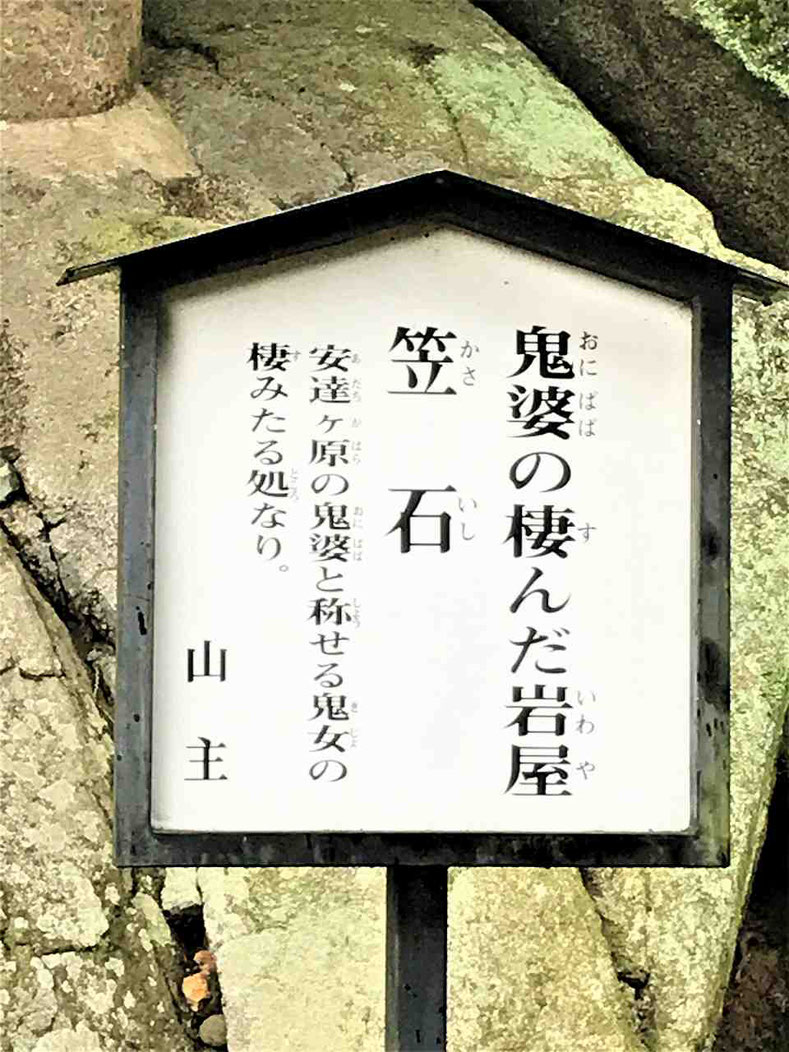 鬼婆の棲んだ岩屋
笠石
安達ヶ原の鬼婆と称せる鬼女の
棲みたる処なり。
山主